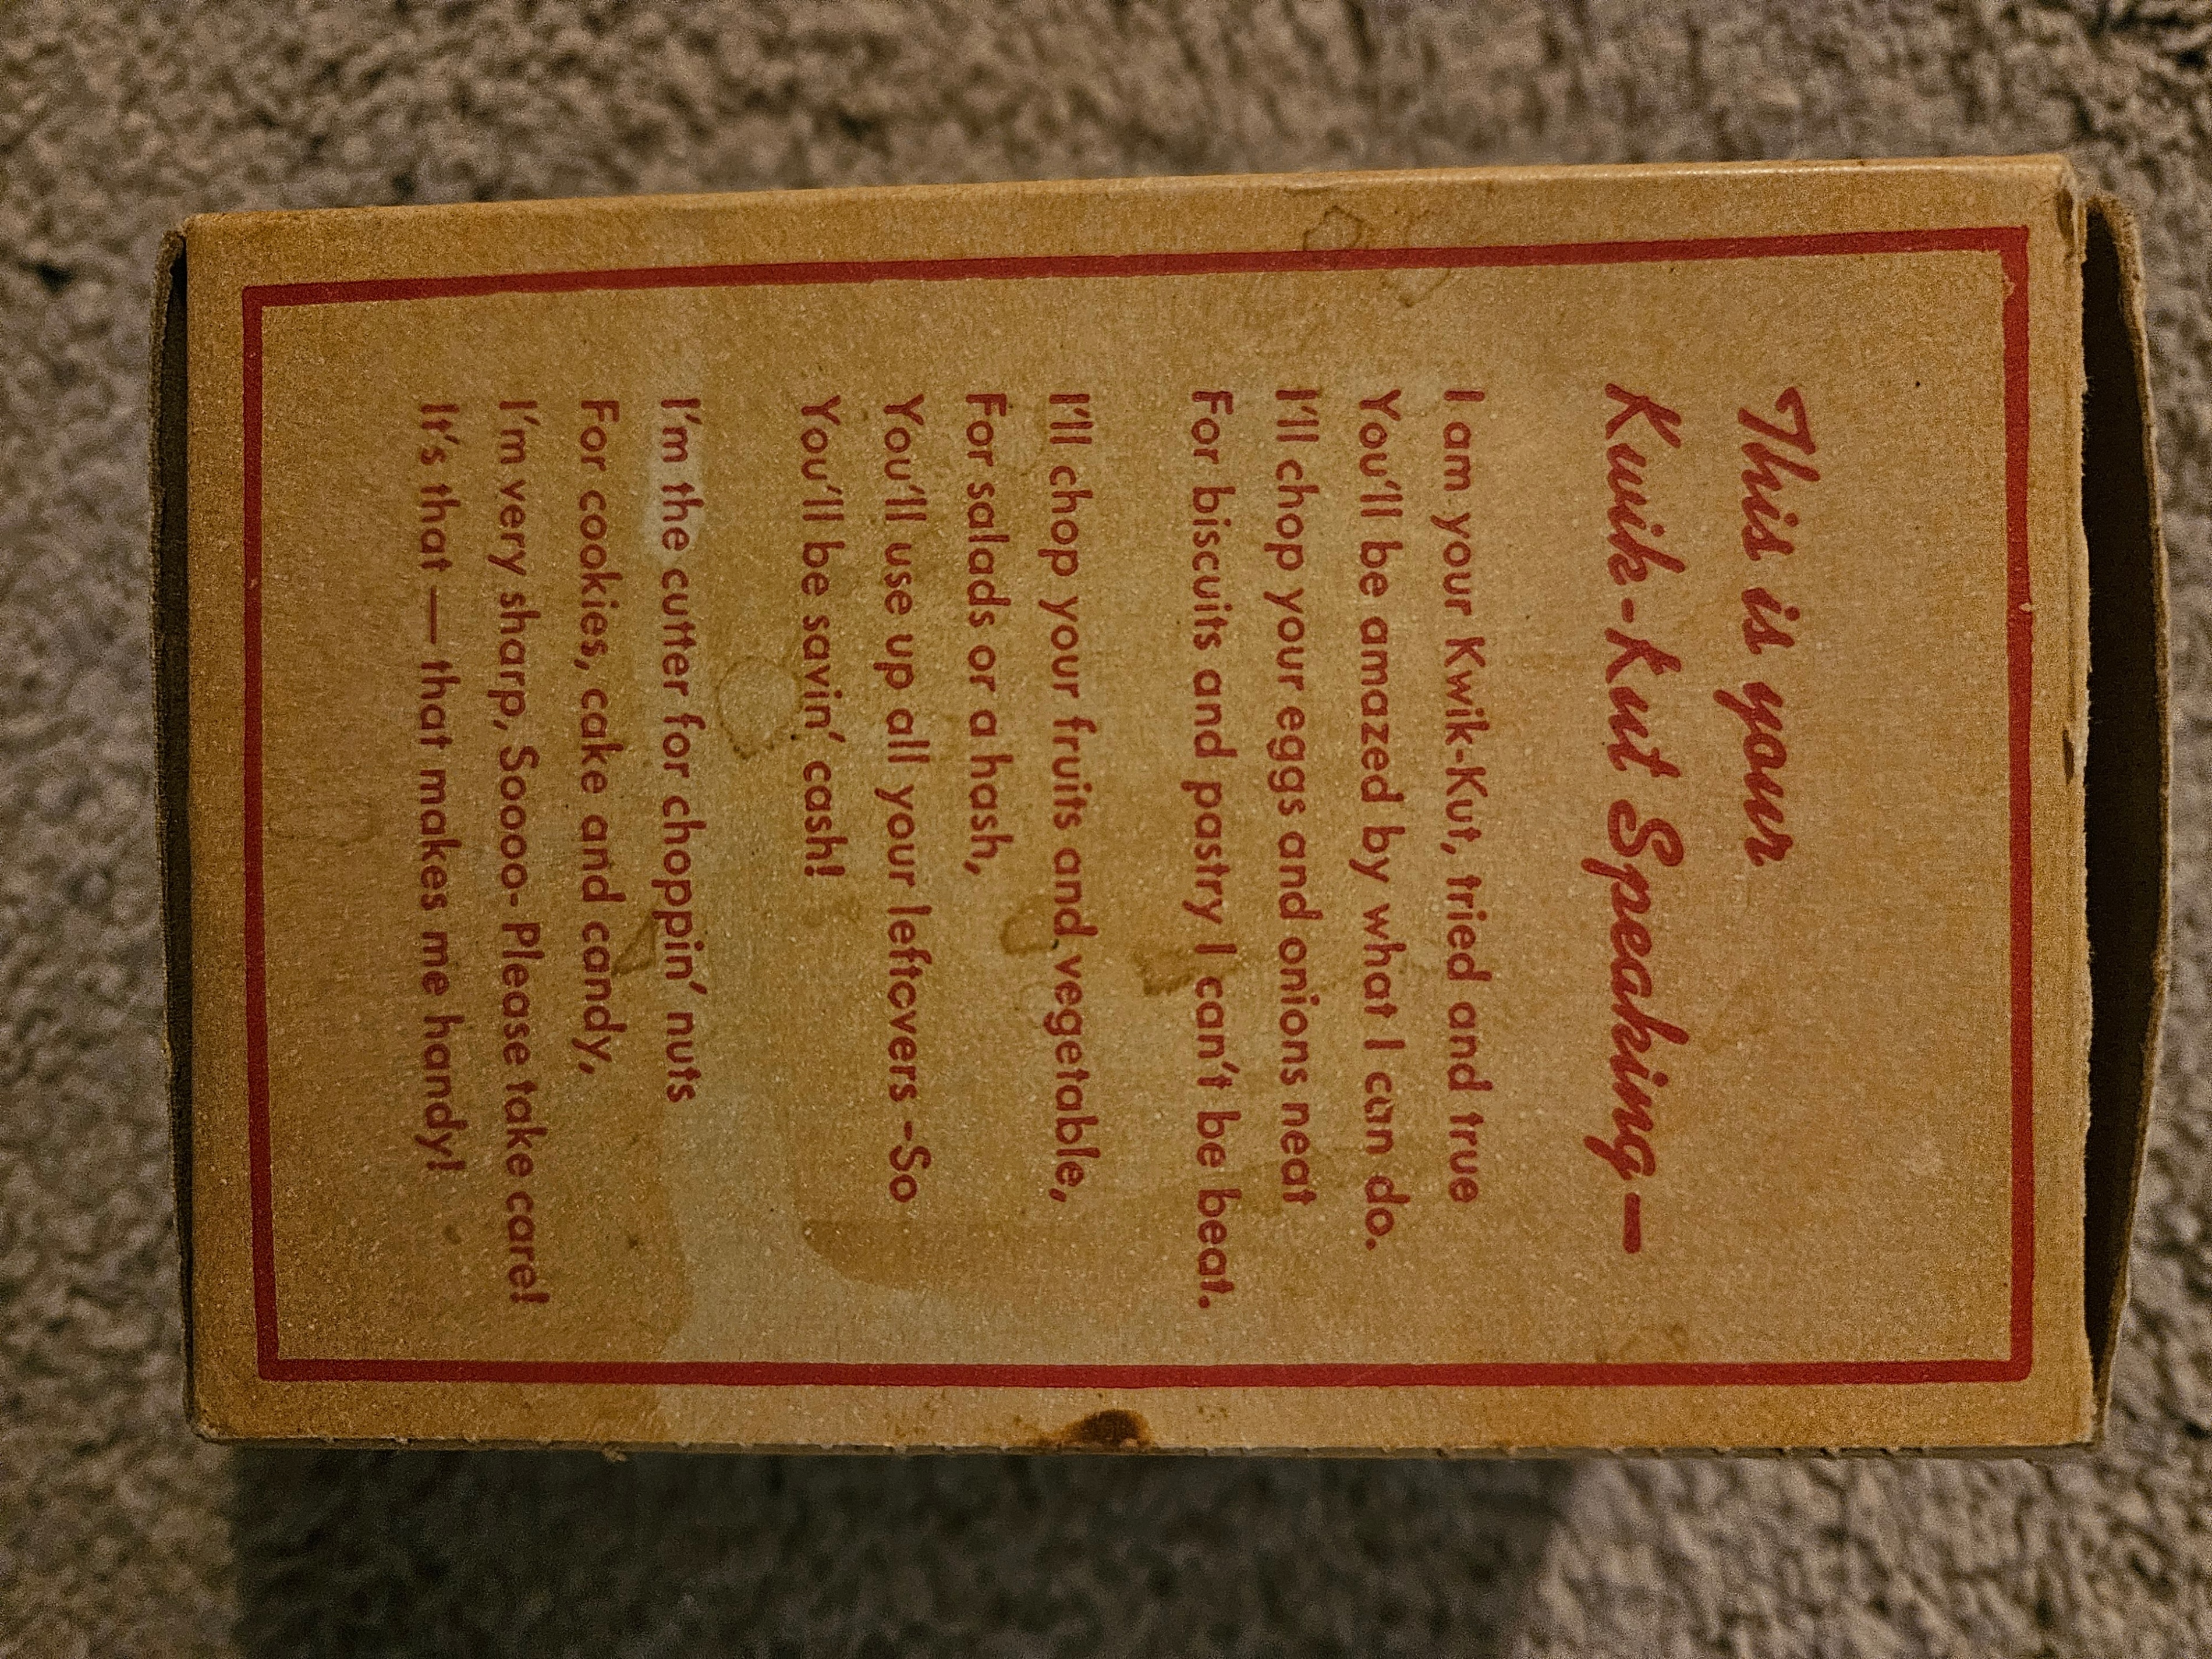 This is your
Kwik-Kut Speaking—
I am your Kwik-Kut, tried and true
You'll be amazed by what I can do.
I'll chop your eggs and onions neat
For biscuits and pastry I can't be beat.
I'll chop your fruits and vegetable,
For salads or a hash,
You'll use up all your leftovers -So
You'll be savin' cash!
I'm the cutter for choppin' nuts
For cookies, cake and candy,
I'm very sharp, Soooo- Please take care!
It's that — that makes me handy!